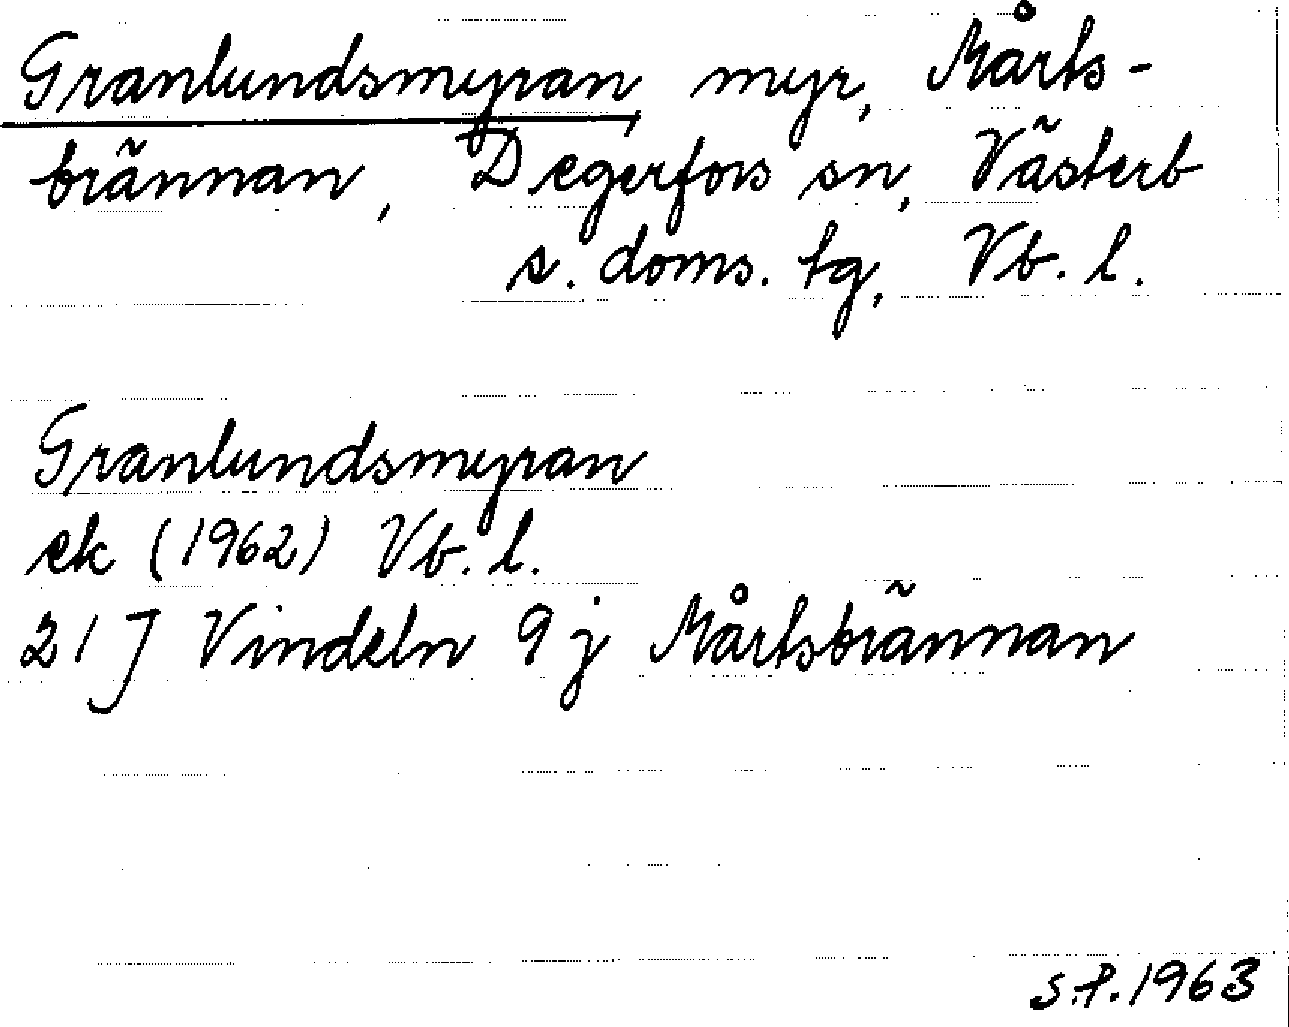 Granlundsmyran, myr, Mårts-
brännan, Degerfors sn, Västerb
s. doms. tg, Vb. l.
Granlundsmyran
ek (1962) Vb. l.
21 J Vindeln 9 j Mårtsbrännan
S.P. 1963